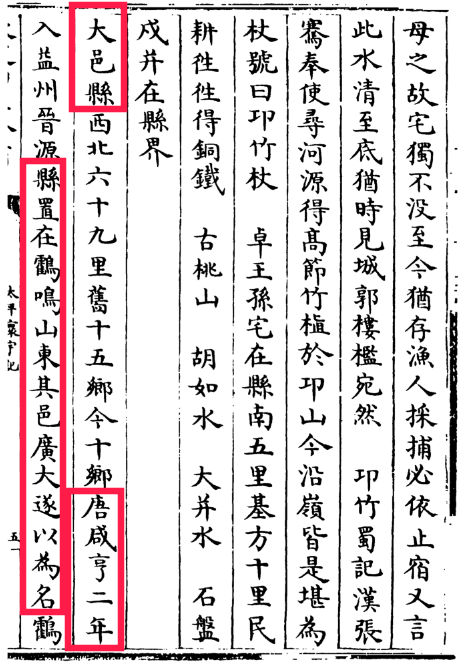 母之故宅獨不没至今猶存漁人採捕必依止宿又言
此水清至底猶時見城郭樓檻宛然　卭竹蜀記漢張
騫奉使尋河源得髙節竹植於卭山今沿嶺皆是堪為
杖號曰卭竹杖　卓王孫宅在縣南五里基方十里民
耕徃徃得銅鐵　古桃山　胡如水　大并水　石盤
戍并在縣界
大邑縣西北六十九里舊十五鄉今十鄉唐咸亨二年
入益州晉源縣置在鸖鳴山東其邑廣大遂以為名鸖
太平寰宇記